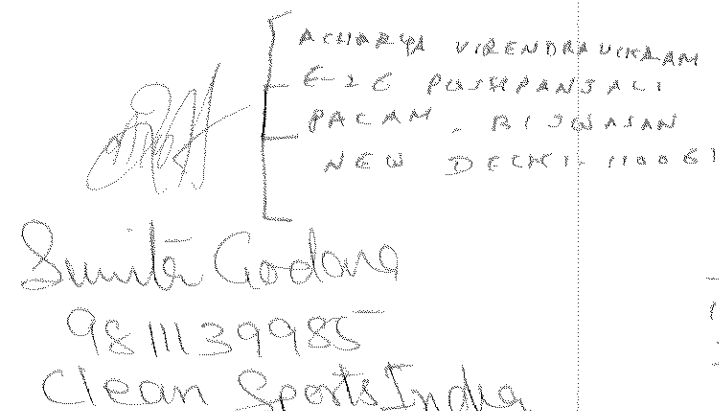 ACHARYA VIRENDRA VIKRAM
E-26 PUSHPANJALI
PALAM - BIJWASAN
NEW DELHI - 110061
Sunita Godara
9811139985
Clean Sports India